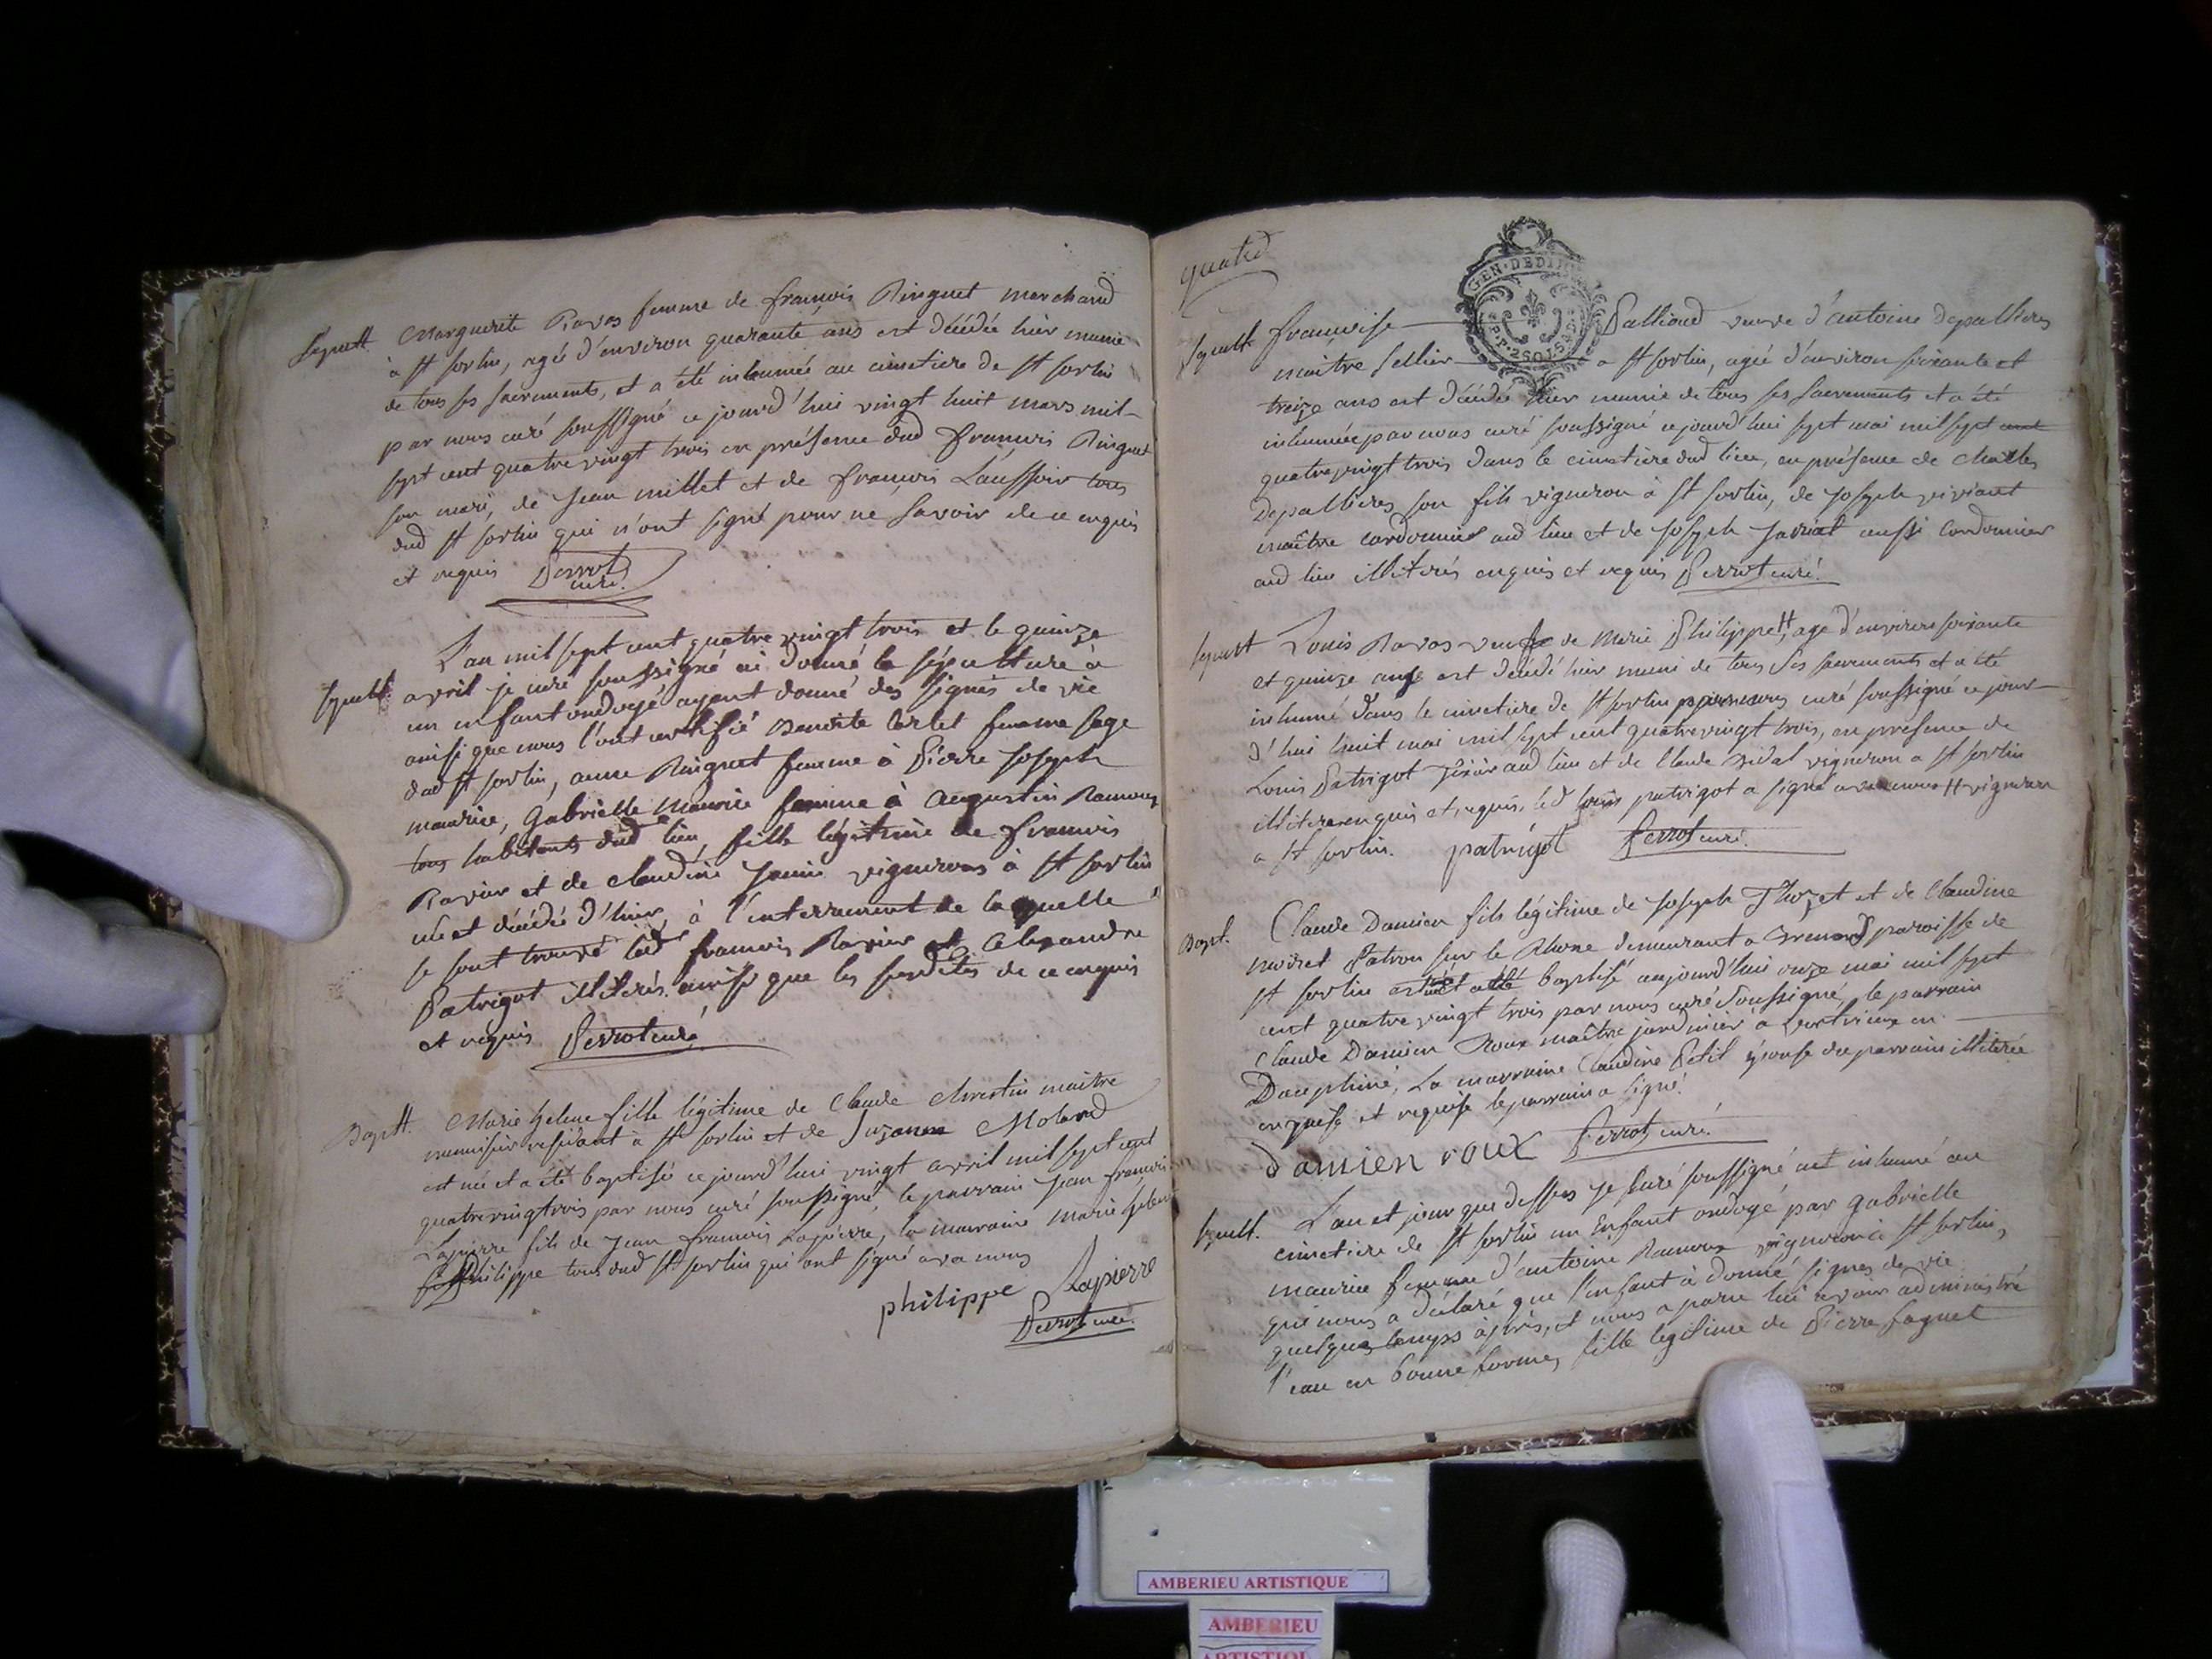 Sepult. Marguerite Ravos femme de françois Ringuet marchand
à st sorlin, agée d'environ quarante ans est décédée hier munie
de tous ses sacrements, et a été inhumée au cimetiere de st sorlin
par nous curé soussigné ce jourd'hui vingt huit mars mil
sept cent quatre vingt trois en présence dud françois Ringuet
son mari, de jean millet et de françois tous
dud st sorlin qui n'ont signé pour ne savoir de ce enquis
et requis Perrot
curé.
L'an mil sept cent quatre vingt trois et le quinze
Sepult. avril je curé soussigné ai donné la sépulture à
un enfant ondoyé ayent donné des signes de vie
ainsi que nous l'ont certifié Benoite femme sage
dud st sorlin, anne Ringuet femme à Pierre Joseph
maurice, Gabrielle maurice femme à augustin Ramoux
tous habitants dud lieu, fille légitime de francois
Ravier et de claudine vignerons à st sorlin
née et décédée d'hier, à l'enterrement de laquelle
se sont trouvé led francois Ravier et alexandre
Patrigot illiterés ainsi que les susdites de ce enquis
et requis Perrot curé
Bapt. Marie helene fille légitime de Claude chrestin maitre
menuisier residant à st sorlin et de Suzanne Molard
est née et a été baptisée ce jourd'hui vingt avril mil sept cent
quatre vingt trois par nous curé soussigné, le parrain jean francois
Lapierre fils de jean francois Lapierre, la marraine marie helene
Philippe tous dud st sorlin qui ont signé avec nous
philippe Lapierre
Perrot curé.
Sepult. françoise Palliaud veuve d'antoine Depallieres
maitre sellier a st sorlin, agée d'environ soixante et
treize ans est décédée hier munie de tous ses sacrements et a été
inhumée par nous curé soussigné ce jourd'hui sept mai mil sept cent
quatre vingt trois dans le cimetiere dud lieu, en présence de charles
Depallieres son fils vigneron à st sorlin, de joseph viviant
maître cordonnier aud lieu et de joseph aussi cordonnier
aud lieu illiterés enquis et requis Perrot curé.
Sepult. Louis Ravos veuf de Marie Philippe H, age d'environ soixante
et quinze ans est décédé hier muni de tous ses sacrements et a été
inhumé dans le cimetiere de st sorlin par nous curé soussigné ce jour
d'hui huit mai mil sept cent quatre vingt trois, en presence de
Louis Patrigot aud lieu et de Claude vidal vigneron a st sorlin
illiteré enquis et requis, led louis patrigot a signé avec nous H vigneron
a st sorlin. patrigot Perrot curé.
Bapt. Claude Damien fils légitime de joseph Thozet et de Claudine
noiret Patron sur le Rhone demeurant a paroisse de
st sorlin est né et a été baptisé aujourd'hui onze mai mil sept
cent quatre vingt trois par nous curé soussigné, le parrain
Claude Damien Roux maître jardinier a en
Dauphiné, La marraine Claudine Petit épouse du parrain illiterée
enquise et requise le parrain a signé.
Damien roux Perrot curé.
Sepult. L'an et jour que dessus je curé soussigné ait inhumé au
cimetiere de st sorlin un Enfant ondoyé par gabrielle
maurice femme d'antoine Ramoux vigneron a st sorlin,
qui nous a déclaré que l'enfant à donné signes de vie
quelques temps après, et nous a paru lui avoir administré
l'eau en bonne forme, fille legitime de Pierre faguet
GEN. DE DI
AMBERIEU ARTISTIQUE
AMBERIEU
ARTISTIQU